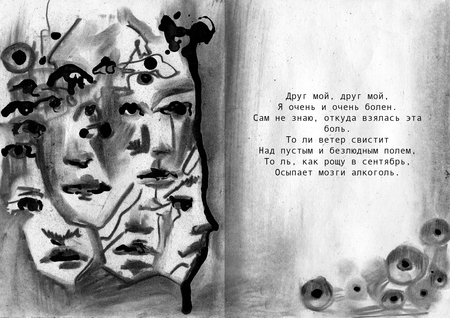 Друг мой, друг мой,
Я очень и очень болен.
Сам не знаю, откуда взялась эта
боль.
То ли ветер свистит
Над пустым и безлюдным полем,
То ль, как рощу в сентябрь,
Осыпает мозги алкоголь.